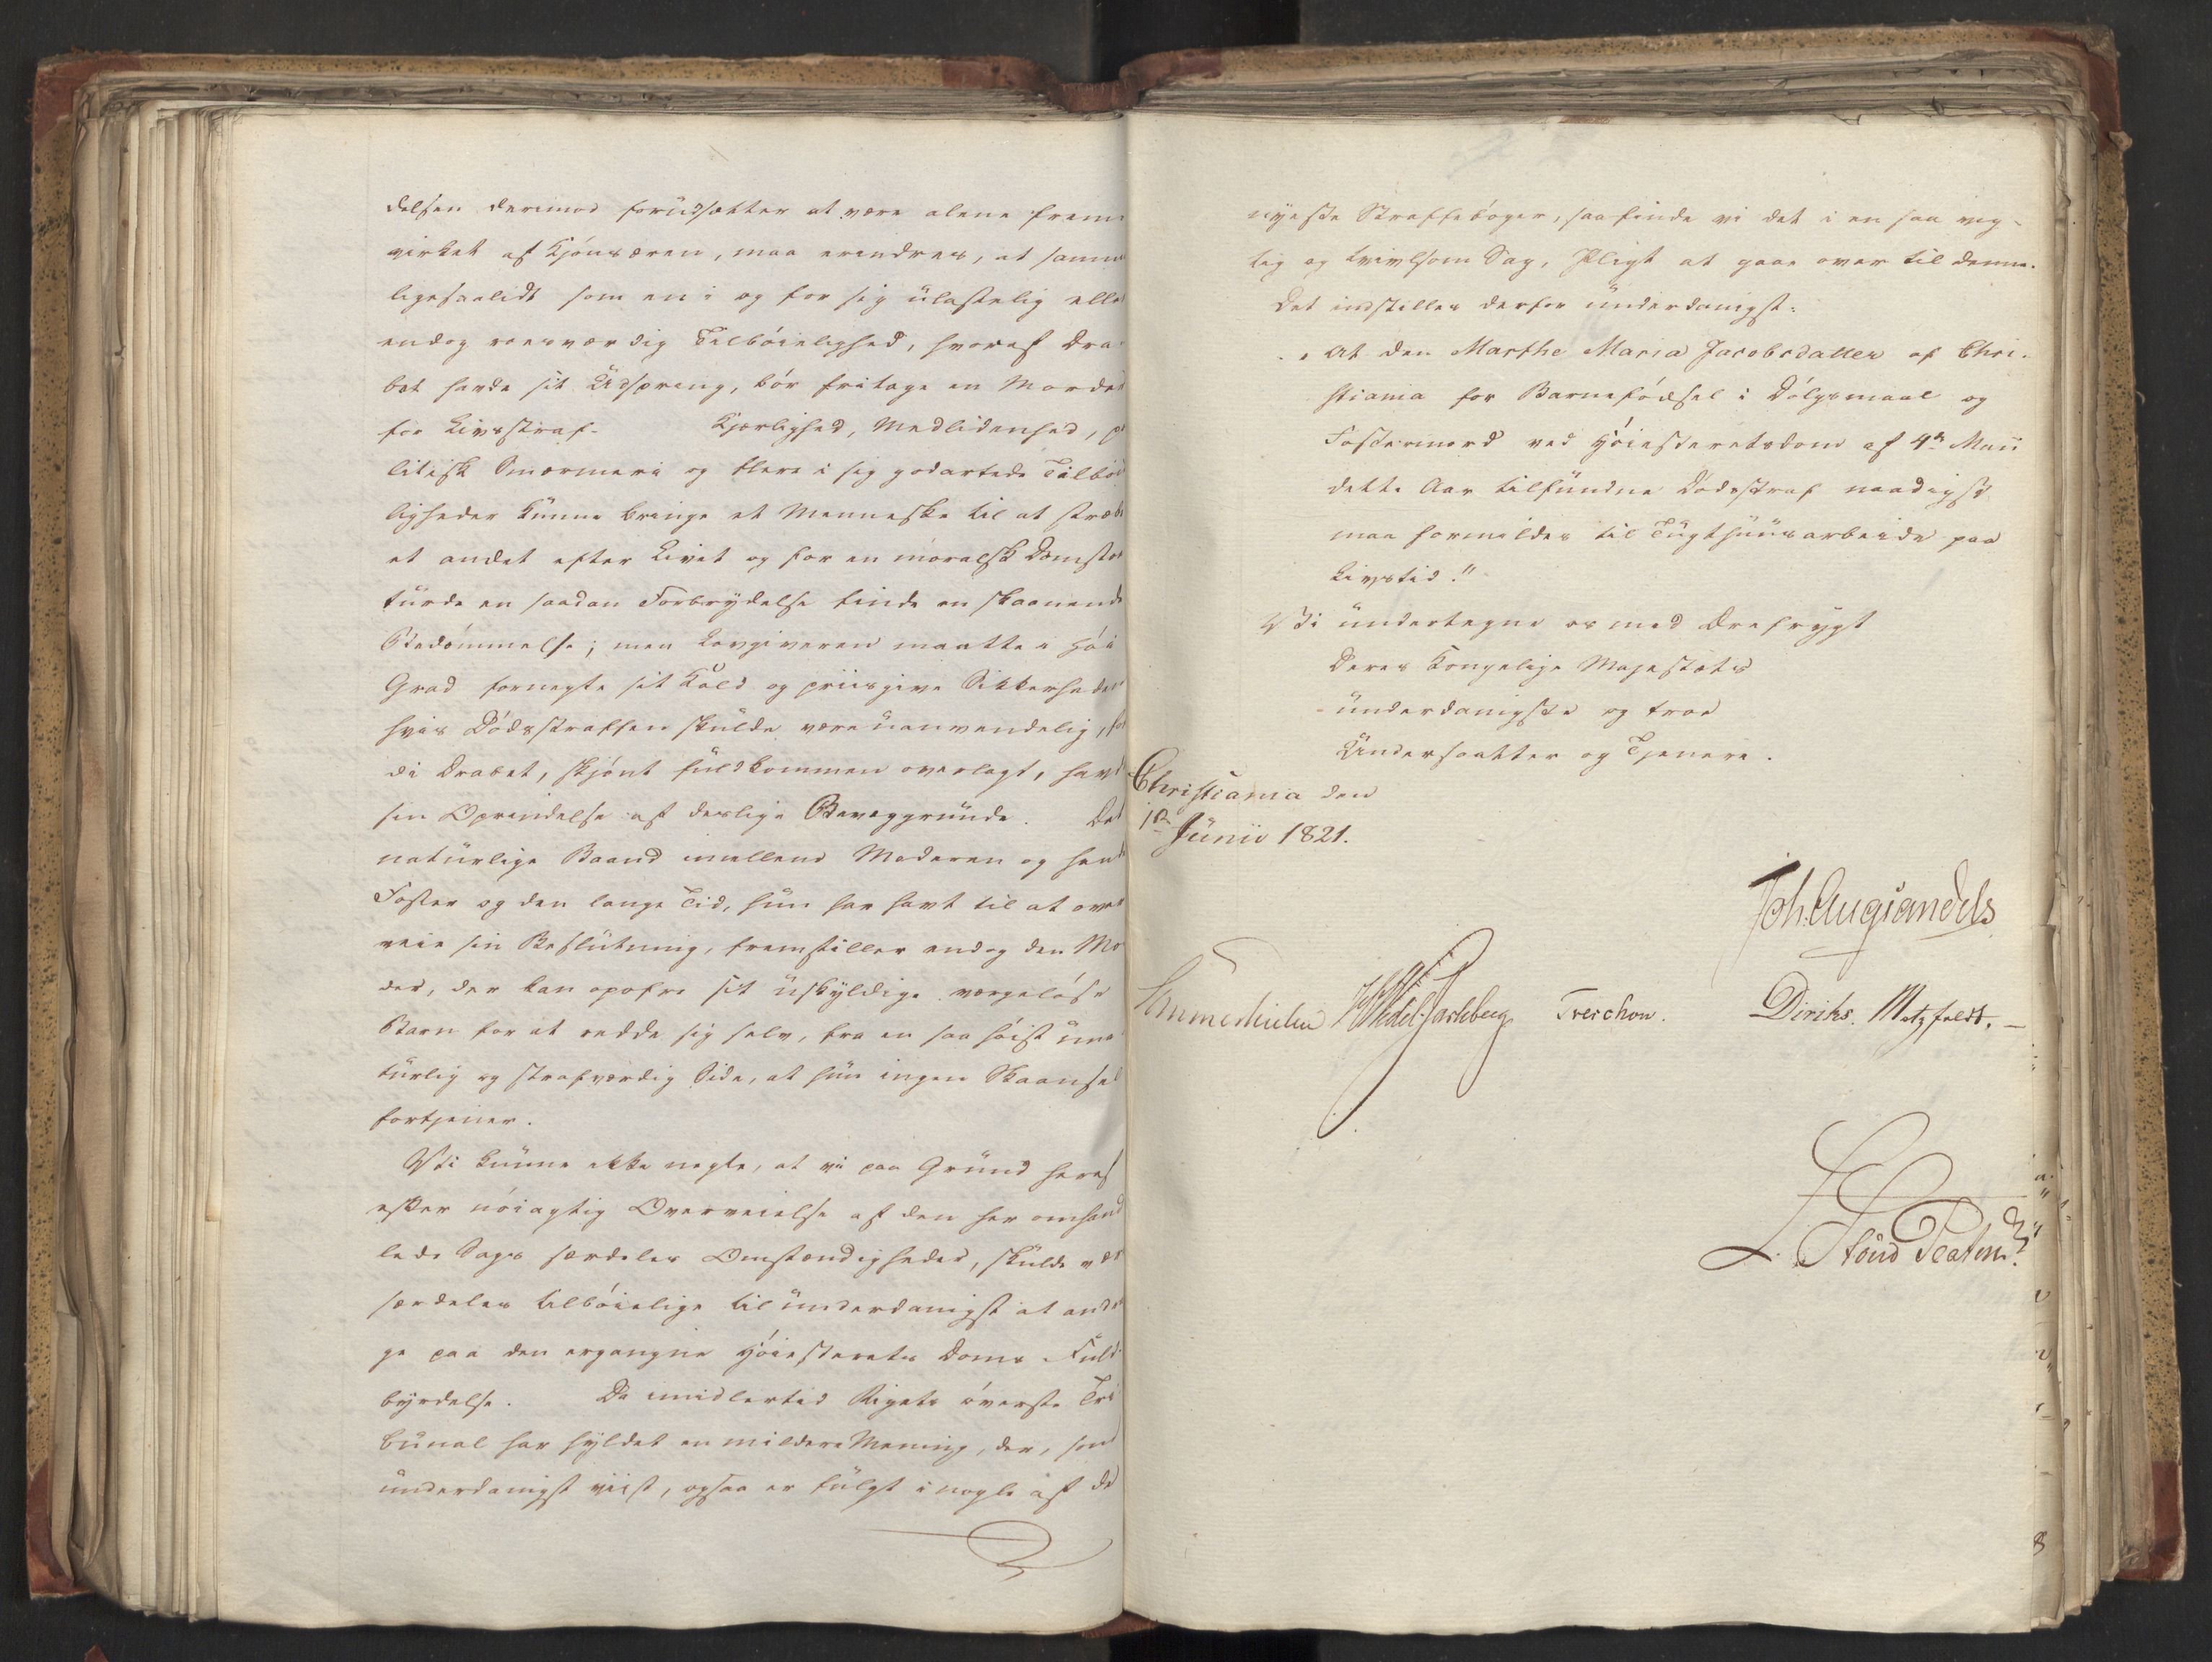 delsen derimod forudsætter at være alene frem
virket af Kjønsæren, maa erindres, at samme
ligesaalidt som en i og for sig ulastelig elle
endog roesværdig Tilbøielighed, hvoraf Dra
bet havde sit Udspring, bør fritage en Morder
for Livsstraf. Kjærlighed, Medlidenhed, po
litisk Sværmeri og flere i sig godartede Tilbøi
ligheder kunne bringe et Menneske til at stræbe
et andet efter Livet og for en moralsk Domstol
turde en saadan Forbrydelse finde en skaanende
Bedømmelse; men Lovgiveren maatte i høi
Grad fornegte sit Kald og priisgive Sikkerheden
hvis Dødsstraffen skulde være uanvendelig, for
di Drabet, skjønt fuldkommen overlagt, havde
sin Oprindelse af deslige Bevæggrunde. Det
naturlige Baand imellem Moderen og hendes
Foster og den lange Tid, hun har havt til at over
veie sin Beslutning, fremstiller endog den Mo
der, der kan opofre sit uskyldige værgeløse
Barn for at redde sig selv, fra en saa høist una
turlig og strafværdig Side, at hun ingen Skaansel
fortjener.
Vi kunne ikke negte, at vi paa Grund heraf
efter nøiagtig Overveielse af den her omhand
lede Sags særdeles Omstændigheder, skulde være
særdeles tilbøielige til underdanigst at andra
ge paa den ergangne Høiesterets Doms Fuld
byrdelse. Da imidlertid Rigets øverste Tri
bunal har hyldet en mildere Mening, der, som
underdanigst viist, ogsaa er fulgt i nogle af de
nyeste Straffebøger, saa finde vi det i en saa vig-
tig og tvivlsom Sag, Pligt at gaae over til denne.
Det indstilles derfor underdanigst:
"At den Marthe Maria Jacobsdatter af Chri-
stiania for Barnefødsel i Dølgsmaal og
Fostermord ved Høiesteretsdom af 4de Maii
dette Aar tilfundne Dødsstraf naadigst
maa formildes til Tugthuusarbeide paa
Livstid."
Vi undertegne os med Ærefrygt
Deres Kongelige Majestæts
underdanigste og troe
Undersaatter og Tjenere.
Christiania den
1ste Junii 1821.
Joh. Aug. Sandels
Sommerhielm HWedel-Jarlsberg Treschow. Diriks. Motzfeldt.
L. Stoud Platou